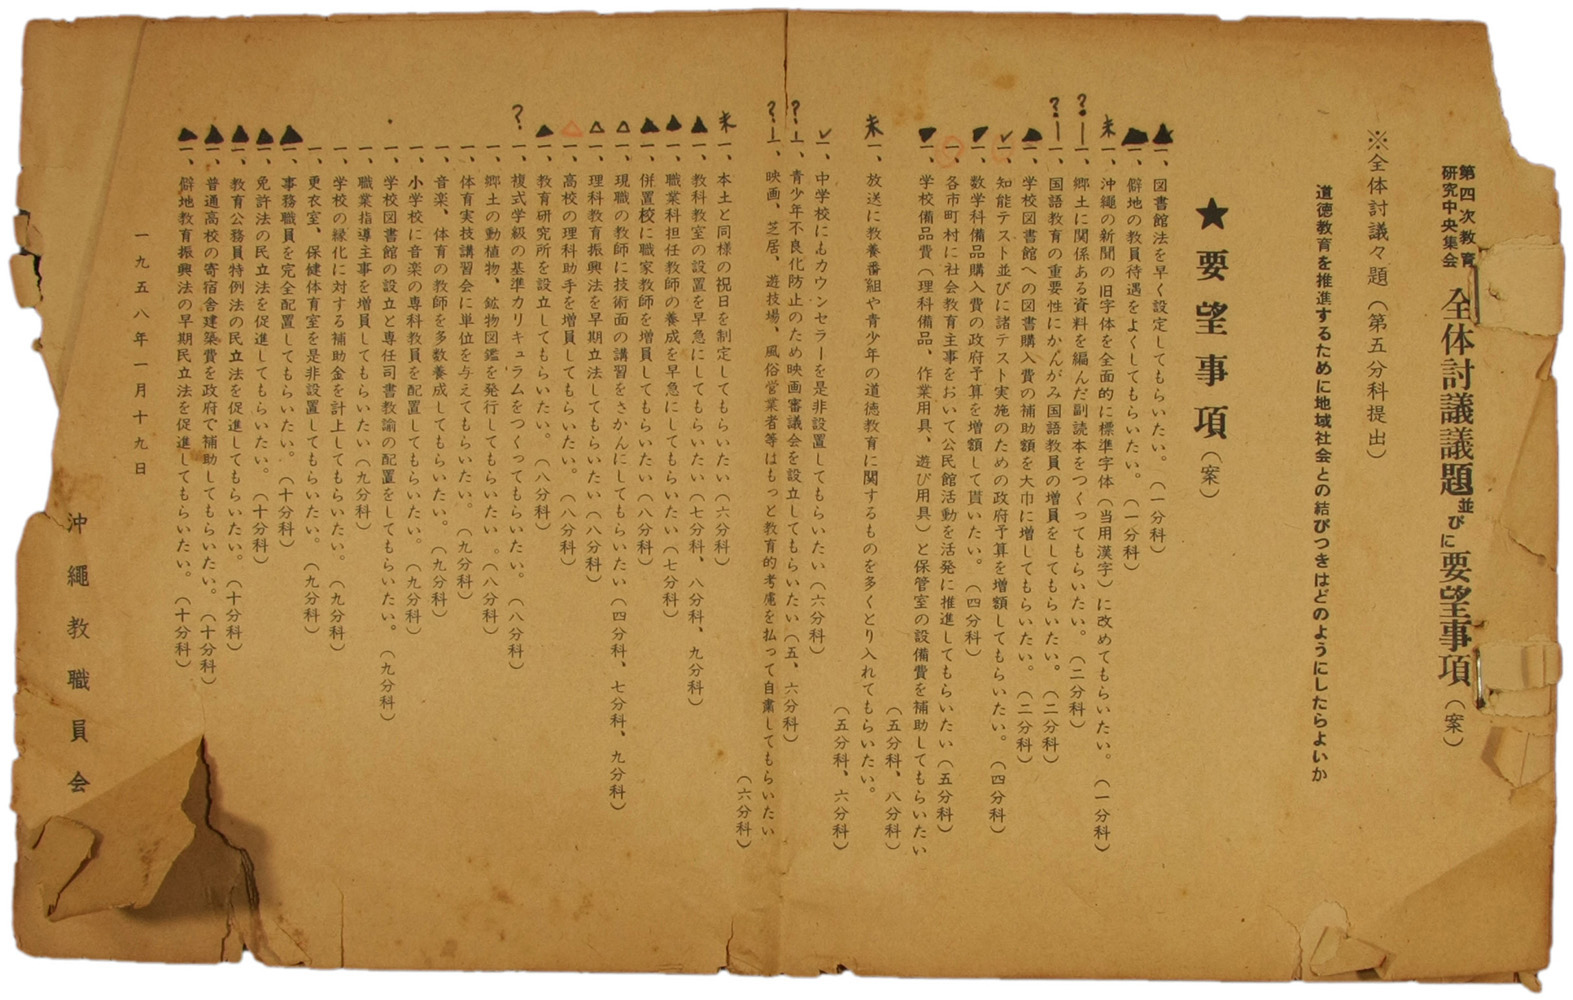 第四次教育
研究中央集会 全体討議議題並びに要望事項（案）
※全体討議々題（第五分科提出）
道徳教育を推進するために地域社会との結びつきはどのようにしたらよいか
★要望事項（案）
一、図書館法を早く設定してもらいたい。（一分科）
一、僻地の教員待遇をよくしてもらいたい。（一分科）
未 一、沖縄の新聞の旧字体を全面的に標準字体（当用漢字）に改めてもらいたい。（一分科）
? 一、郷土に関係ある資料を編んだ副読本をつくってもらいたい。（二分科）
? 一、国語教育の重要性にかんがみ国語教員の増員をしてもらいたい。（二分科）
一、学校図書館への図書購入費の補助額を大巾に増してもらいたい。（二分科）
一、知能テスト並びに諸テスト実施のための政府予算を増額してもらいたい。（四分科）
一、数学科備品購入費の政府予算を増額して貰いたい。（四分科）
一、各市町村に社会教育主事をおいて公民館活動を活発に推進してもらいたい（五分科）
一、学校備品費（理科備品、作業用具、遊び用具）と保管室の設備費を補助してもらいたい
（五分科、八分科）
未 一、放送に教養番組や青少年の道徳教育に関するものを多くとり入れてもらいたい。
（五分科、六分科）
一、中学校にもカウンセラーを是非設置してもらいたい（六分科）
? 一、青少年不良化防止のため映画審議会を設立してもらいたい（五、六分科）
? 一、映画、芝居、遊技場、風俗営業者等はもっと教育的考慮を払って自粛してもらいたい
（六分科）
未 一、本土と同様の祝日を制定してもらいたい（六分科）
一、教科教室の設置を早急にしてもらいたい（七分科、八分科、九分科）
一、職業科担任教師の養成を早急にしてもらいたい（七分科）
一、併置校に職家教師を増員してもらいたい（八分科）
一、現職の教師に技術面の講習をさかんにしてもらいたい（四分科、七分科、九分科）
一、理科教育振興法を早期立法してもらいたい（八分科）
一、高校の理科助手を増員してもらいたい。（八分科）
一、教育研究所を設立してもらいたい。（八分科）
? 一、複式学級の基準カリキュラムをつくってもらいたい。（八分科）
一、郷土の動植物、鉱物図鑑を発行してもらいたい。（八分科）
一、体育実技講習会に単位を与えてもらいたい。（九分科）
一、音楽、体育の教師を多数養成してもらいたい。（九分科）
一、小学校に音楽の専科教員を配置してもらいたい。（九分科）
一、学校図書館の設立と専任司書教諭の配置をしてもらいたい。（九分科）
一、職業指導主事を増員してもらいたい（九分科）
一、学校の緑化に対する補助金を計上してもらいたい。（九分科）
一、更衣室、保健体育室を是非設置してもらいたい。（九分科）
一、事務職員を完全配置してもらいたい。（十分科）
一、免許法の民立法を促進してもらいたい。（十分科）
一、教育公務員特例法の民立法を促進してもらいたい。（十分科）
一、普通高校の寄宿舎建築費を政府で補助してもらいたい。（十分科）
一、僻地教育振興法の早期民立法を促進してもらいたい。（十分科）
一九五八年一月十九日
沖繩教職員会